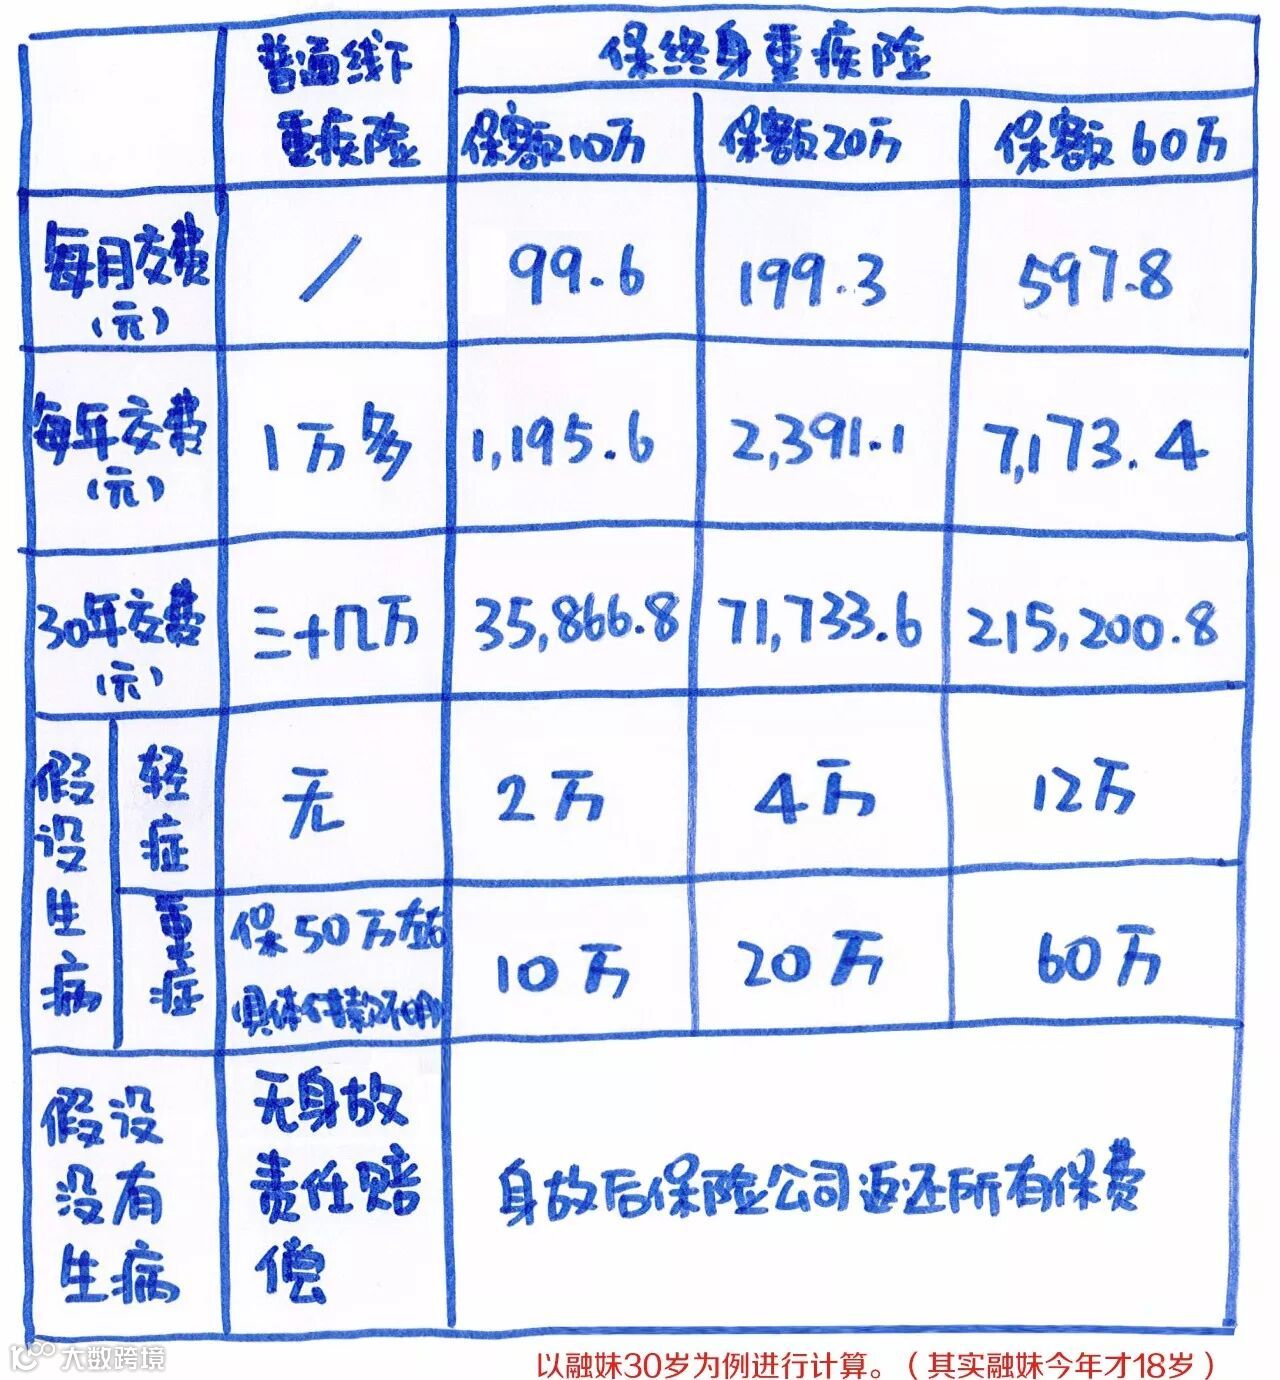 普通线下
重疾险
保终身重疾险
保额10万
保额20万
保额60万
每月交费
(元)
/
99.6
199.3
597.8
每年交费
(元)
1万多
1,195.6
2,391.1
7,173.4
30年交费
(元)
三十几万
35,866.8
71,733.6
215,200.8
假设生病
轻症
无
2万
4万
12万
重症
保50万左右
(具体付款不明)
10万
20万
60万
假设
没有
生病
无身故
责任赔
偿
身故后保险公司返还所有保费
大数跨境
以融妹30岁为例进行计算。（其实融妹今年才18岁）